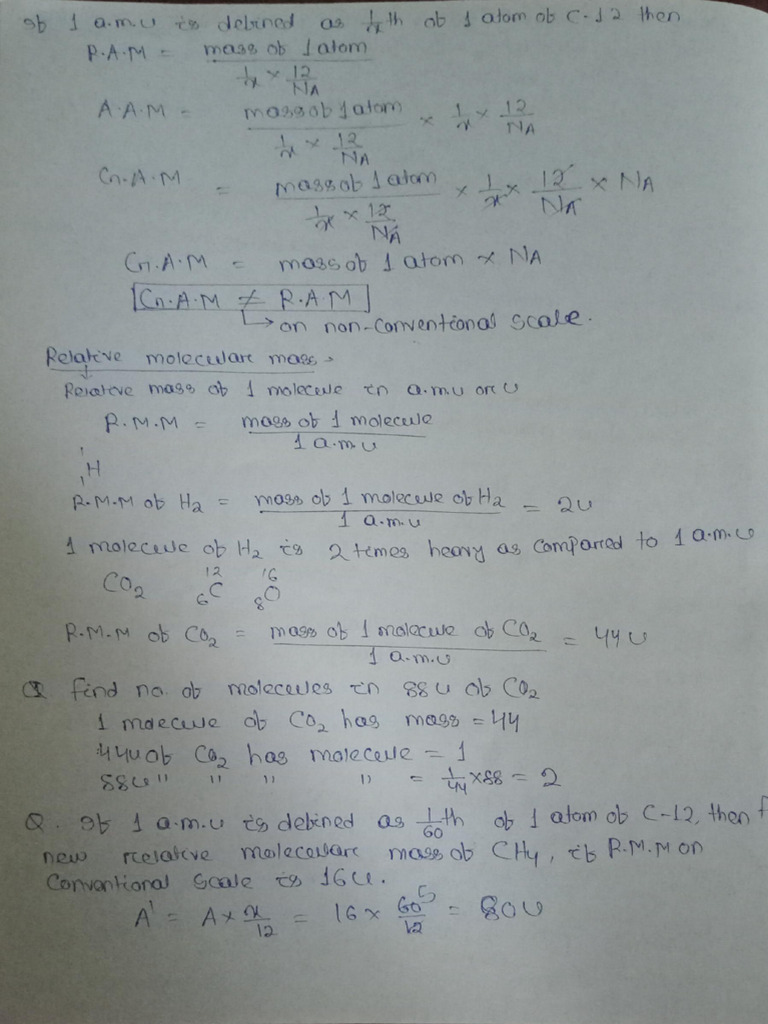 If 1 a.m.u is defined as 1/x th of 1 atom of C-12 then
R.A.M = mass of 1 atom / (1/x × 12/NA)
A.A.M = mass of 1 atom / (1/x × 12/NA) × 1/x × 12/NA
G.A.M = mass of 1 atom / (1/x × 12/NA) × 1/x × 12/NA × NA
G.A.M = mass of 1 atom × NA
[G.A.M ≠ R.A.M]
→ on non-conventional scale.
Relative moleculare mass→
Relative mass of 1 molecule in a.m.u or u
R.M.M = mass of 1 molecule / 1 a.m.u
1 1 H
R.M.M of H2 = mass of 1 molecule of H2 / 1 a.m.u = 2u
1 molecule of H2 is 2 times heavy as compared to 1 a.m.u
CO2 12 6 C 16 8 O
R.M.M of CO2 = mass of 1 molecule of CO2 / 1 a.m.u = 44u
Q find no. of molecules in 88u of CO2
1 molecule of CO2 has mass = 44
44u of CO2 has molecule = 1
88u " " " = 1/44 × 88 = 2
Q. If 1 a.m.u is defined as 1/60 th of 1 atom of C-12, then f
new relative moleculare mass of CH4, if R.M.M on
Conventional Scale is 16u.
A' = A × x/12 = 16 × 60/12 5 = 80u